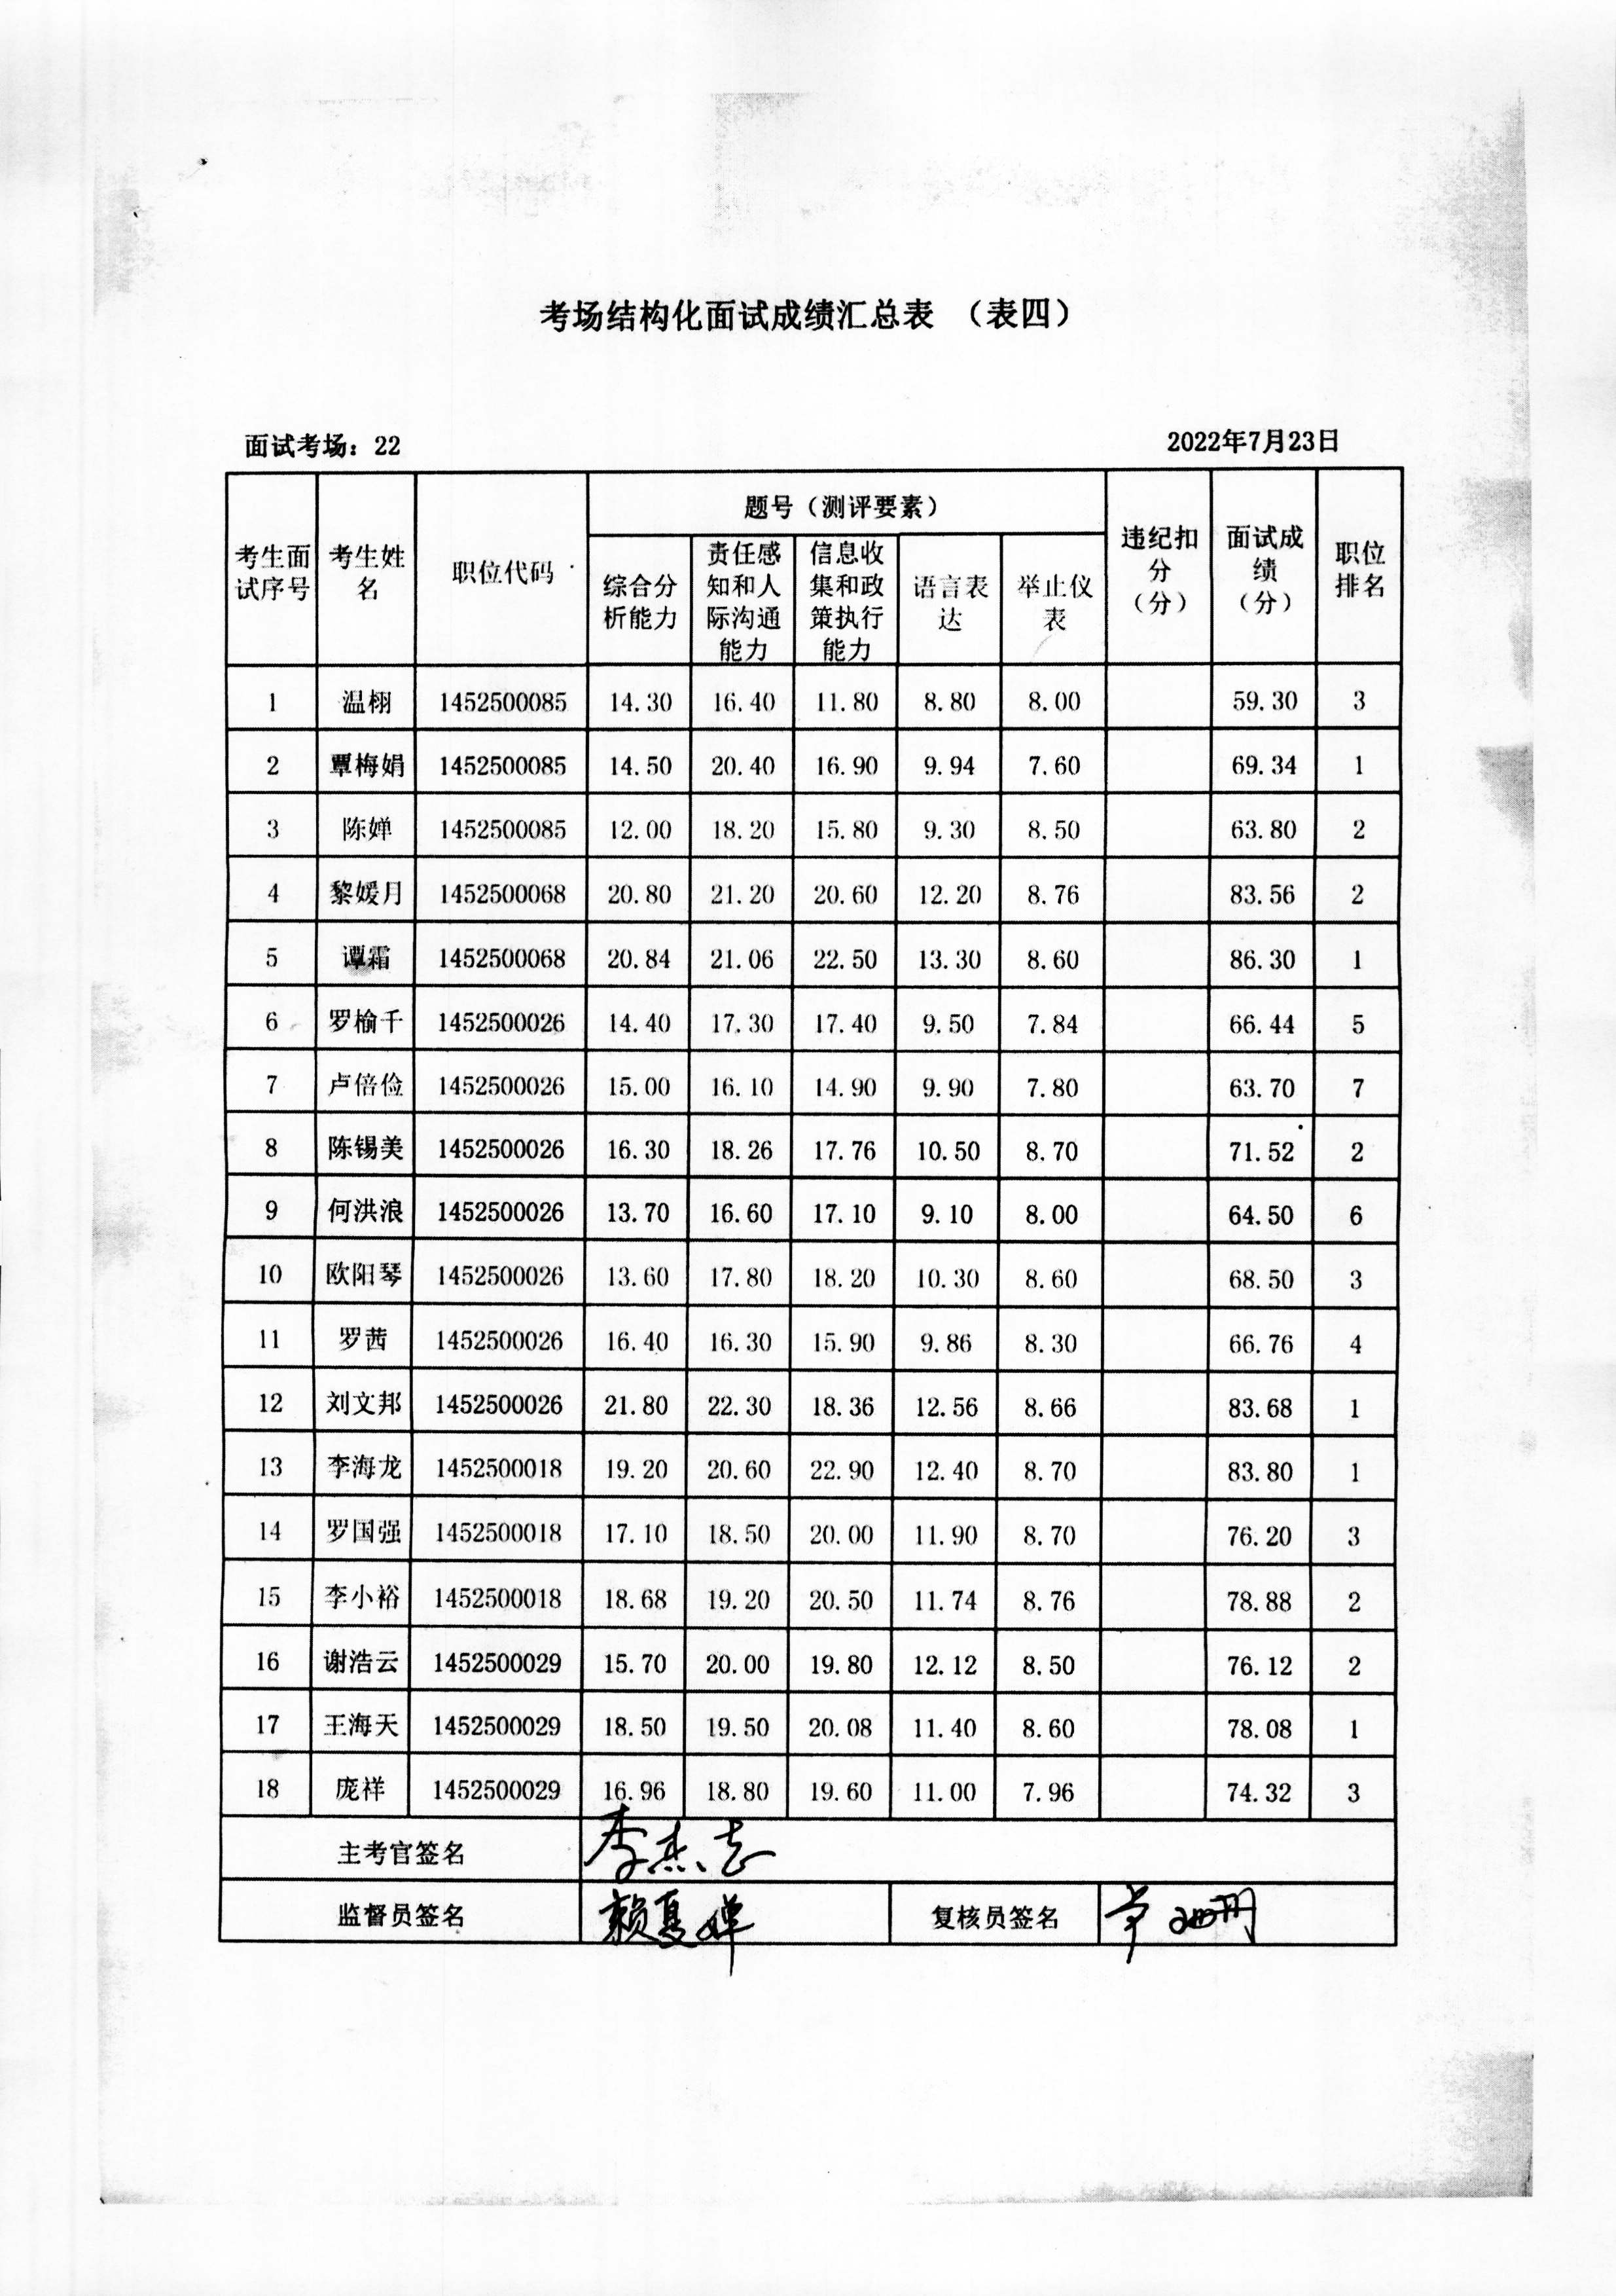 考场结构化面试成绩汇总表 （表四）
面试考场：22 2022年7月23日
考生面试序号 考生姓名 职位代码 题号（测评要素） 违纪扣分（分） 面试成绩（分） 职位排名
综合分析能力 责任感知和人际沟通能力 信息收集和政策执行能力 语言表达 举止仪表
1 温栩 1452500085 14.30 16.40 11.80 8.80 8.00 59.30 3
2 覃梅娟 1452500085 14.50 20.40 16.90 9.94 7.60 69.34 1
3 陈婵 1452500085 12.00 18.20 15.80 9.30 8.50 63.80 2
4 黎媛月 1452500068 20.80 21.20 20.60 12.20 8.76 83.56 2
5 谭霜 1452500068 20.84 21.06 22.50 13.30 8.60 86.30 1
6 罗榆千 1452500026 14.40 17.30 17.40 9.50 7.84 66.44 5
7 卢倍俭 1452500026 15.00 16.10 14.90 9.90 7.80 63.70 7
8 陈锡美 1452500026 16.30 18.26 17.76 10.50 8.70 71.52 2
9 何洪浪 1452500026 13.70 16.60 17.10 9.10 8.00 64.50 6
10 欧阳琴 1452500026 13.60 17.80 18.20 10.30 8.60 68.50 3
11 罗茜 1452500026 16.40 16.30 15.90 9.86 8.30 66.76 4
12 刘文邦 1452500026 21.80 22.30 18.36 12.56 8.66 83.68 1
13 李海龙 1452500018 19.20 20.60 22.90 12.40 8.70 83.80 1
14 罗国强 1452500018 17.10 18.50 20.00 11.90 8.70 76.20 3
15 李小裕 1452500018 18.68 19.20 20.50 11.74 8.76 78.88 2
16 谢浩云 1452500029 15.70 20.00 19.80 12.12 8.50 76.12 2
17 王海天 1452500029 18.50 19.50 20.08 11.40 8.60 78.08 1
18 庞祥 1452500029 16.96 18.80 19.60 11.00 7.96 74.32 3
主考官签名 李杰志
监督员签名 赖夏婵 复核员签名